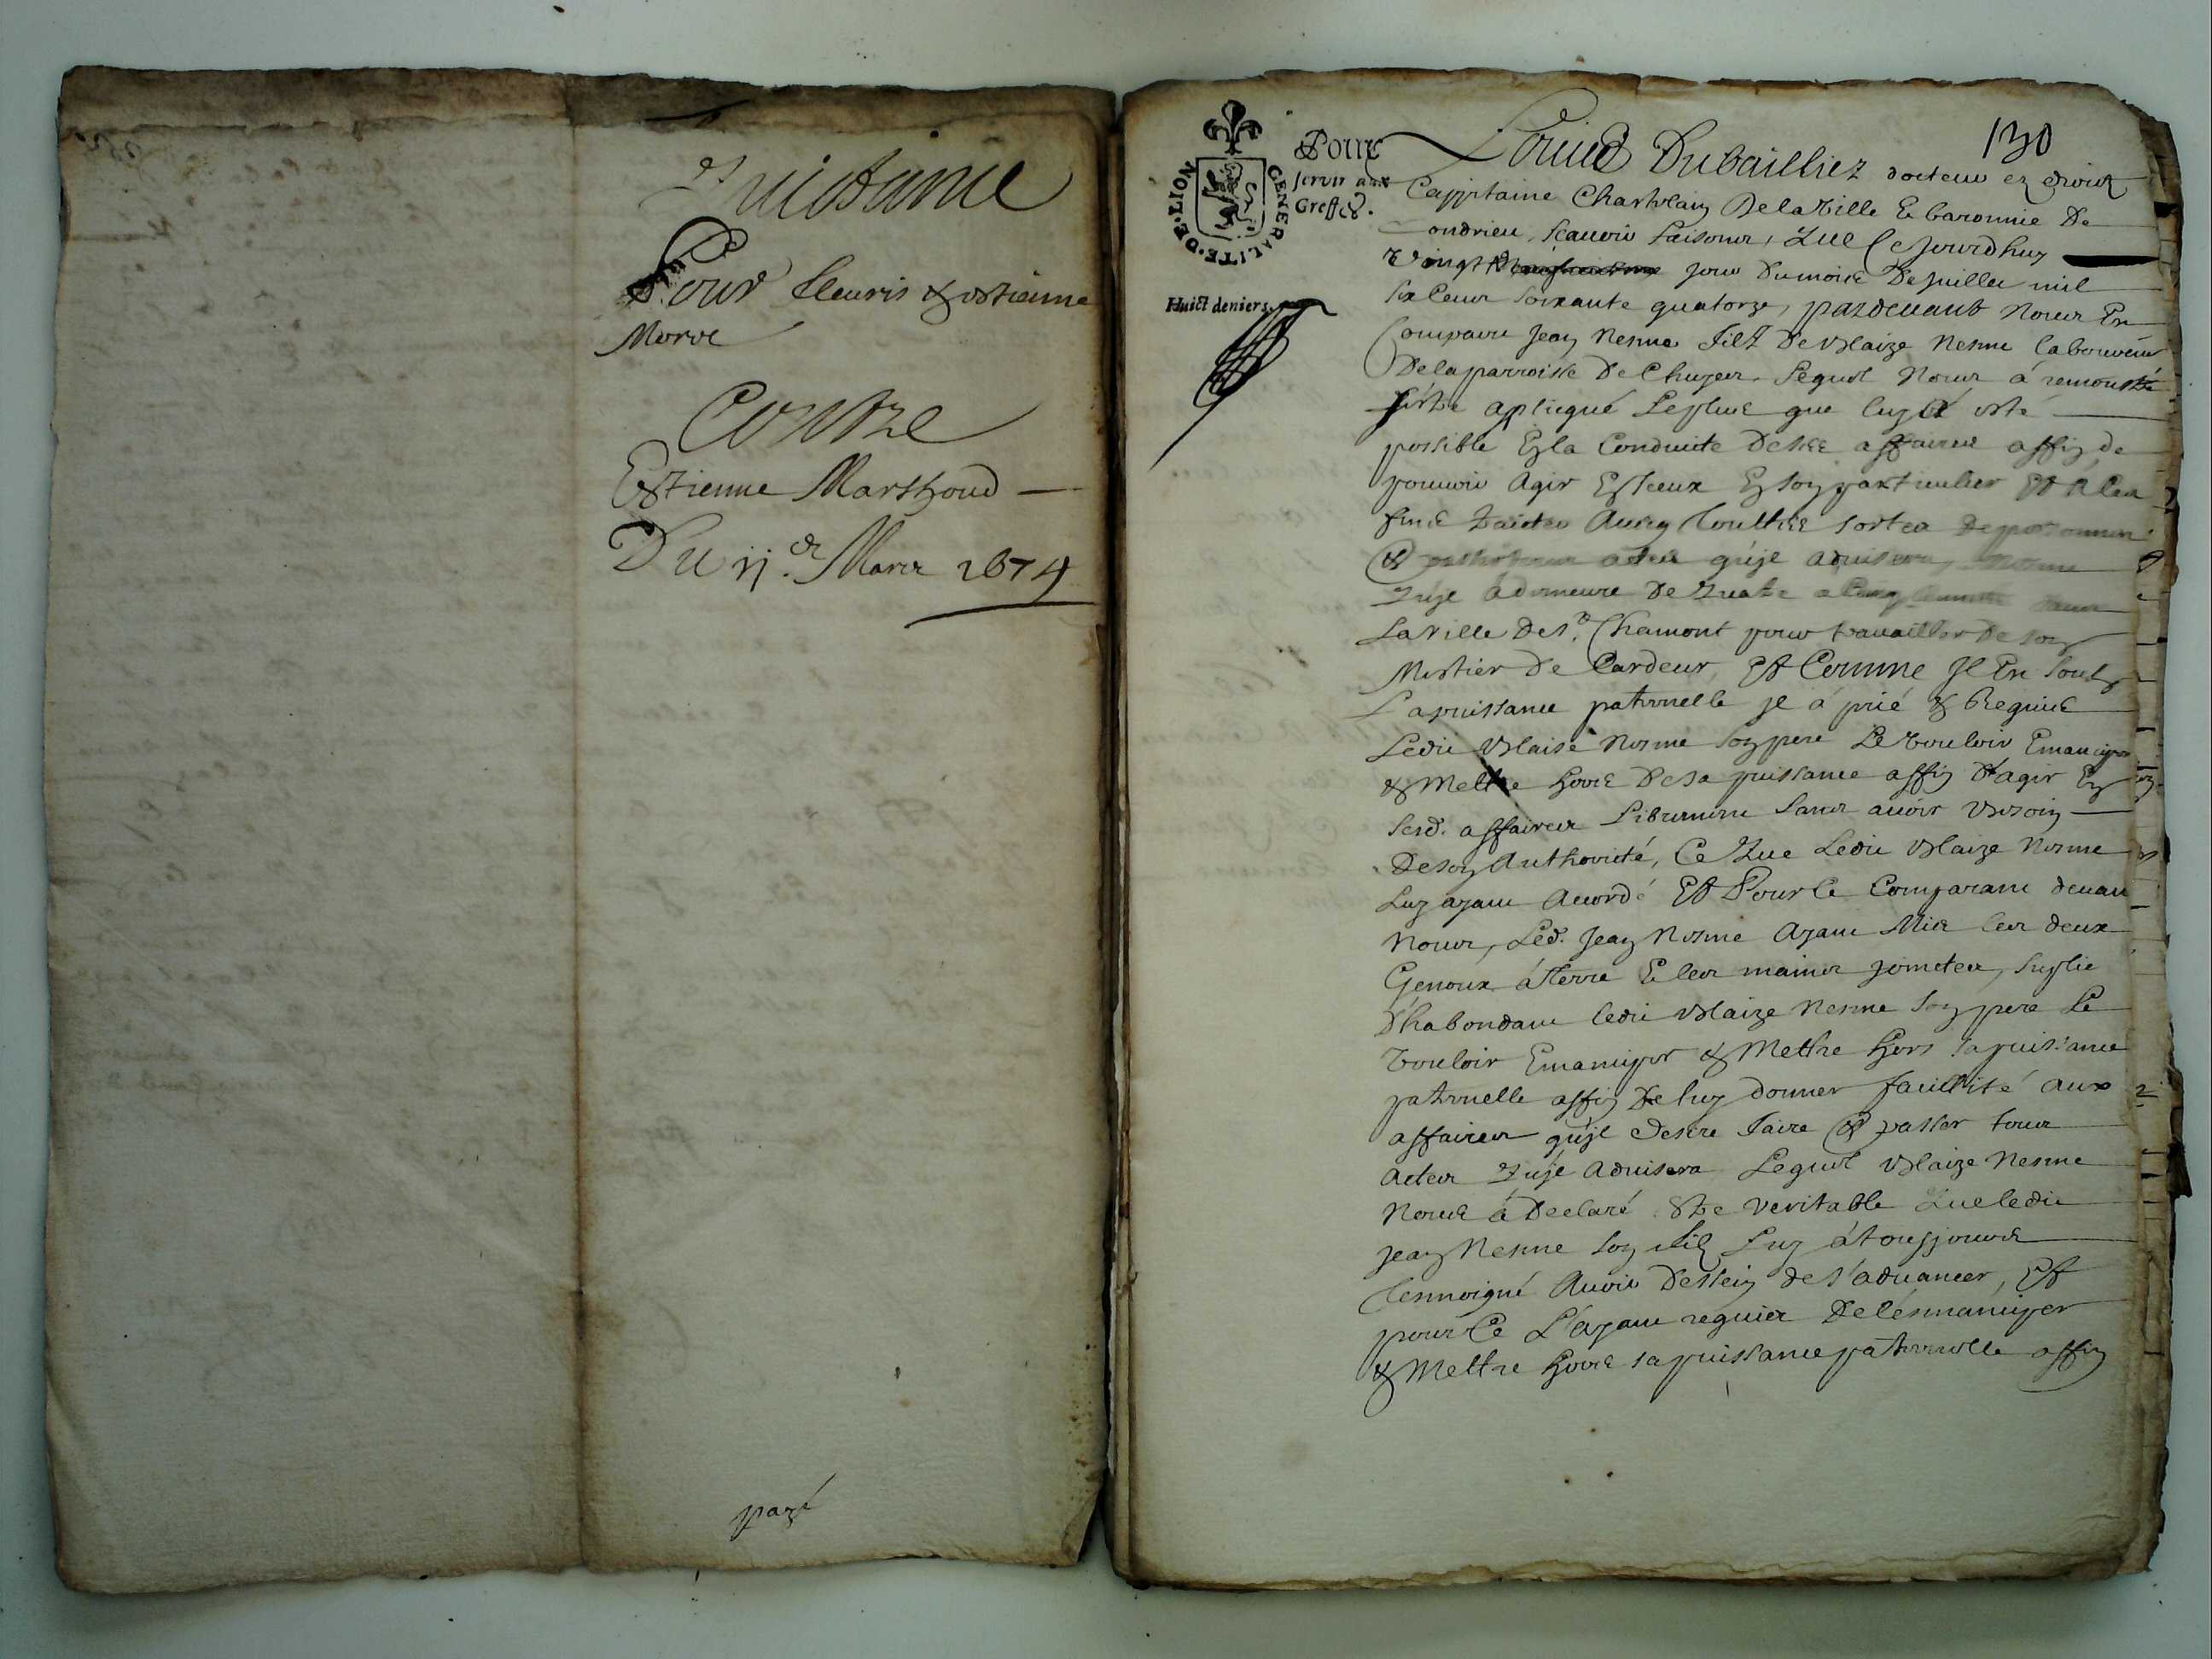 Quictance
Pour fleuris & estienne
Morel
Contre
Estienne Marthoud
Du 11.e Mars 1674
payé
130
GENERALITE·DE·LION
Pour
servir aux
Greffes.
Huict deniers.
Louis Dubailliez docteur ez droictz
Cappitaine Chastelain De la ville & baronnie De
Condrieu, scavoir faisons, Que Ce jourdhuy
Vingt jour du mois De juillet mil
six Cens soixante quatorze, pardevant Nous En
Compareu Jean Nesme filz De blaize Nesme laboureur
De la parroisse De Chuyes. Lequel Nous à remonstré
s'estre aplicqué Le plus que luy à esté
possible En la Conduite De ses affaires affin de
pouvoir Agir Esseux En son particulier Et A Ces
fins traiter Avecq touttes sortes De personnes
& passer actes qu'jl advisera,
Qu'jl à demeuré De Quatre a Cinq
La Ville De St. Chamont pour travailler De son
Mestier De Cardeur, Et Comme Jl En soubz
La puissance paternelle jl à prié & Requis
Ledit blaise Nesme son pere Le vouloir Emanciper
& Mettre hors De sa puissance affin D'agir En
sesd. affaires Librement sans avoir besoin
De son Authorité, Ce Que Ledit blaize Nesme
Luy ayant Accordé Et Pour Ce Comparant devant
Nous, Led. Jean Nesme Ayant Mis les deux
Genoux à terre & les mains joinctes, suplie
D'habondant ledit blaize Nesme son pere Le
vouloir Emanciper & Mettre hors sa puissance
paternelle affin De luy donner facillité aux
affaires qu'jl desire faire & passer tous
actes Qu'jl advisera Lequel blaize Nesme
Nous à Declaré Estre veritable Que ledit
Jean Nesme son filz Luy à tousjours
tesmoigné Avoir Dessein de s'advancer, Et
pour Ce L'ayant requis De l'émanciper
& Mettre hors sa puissance paternelle affin